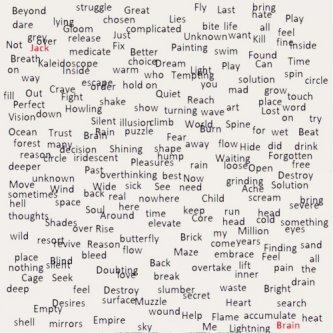 Beyond struggle Great Fly Last bring hate
dare lying chosen Lies bite life all Play
grey Gloom complicated Kill
Not over release Just Unknown want fine
Jack Fix Painting swim Found Inside
medicate Better Time
Breath Kaleidoscope choice Dream Light Play Can
on Inside warm who Tempting solution spin
way escape order hold on you circle
fill Out Crave Fight Quiet mad grow place
Perfect shake Reach touch
Vision Howling show turning wave art word
down Lost on
Silent illusion climb World Spine try
Ocean Trust Rain puzzle Burn for wet Beat
Brain Fear
forest many decision Shining shape away flow Hide did drink
reason circle iridescent hump Waiting Forgotten
deeper Pleasures rain loose Open free
Past overthinking best Now Destroy
unknown Wide sick See need grinding Solution
Move Wind Acne
sometimes back real nowhere Child scream bring
hell space Soul here keep run head severe
thoughts Around time Core
Shades elevate head cold something
over Rise Brick my Million eyes
wild butterfly come years Finding sand
resort revive Reason Maze embrace Feel all
place Blind flow Doubting Back
nothing silent overtake lift pain the
Cage Seek love break inner drain
deep feel Destroy slumber waste Bright
Desires surface Muzzle secret Heart search
Empty wound Help Flame accumulate heat
shell mirrors Empire sky Me Lightning Brain